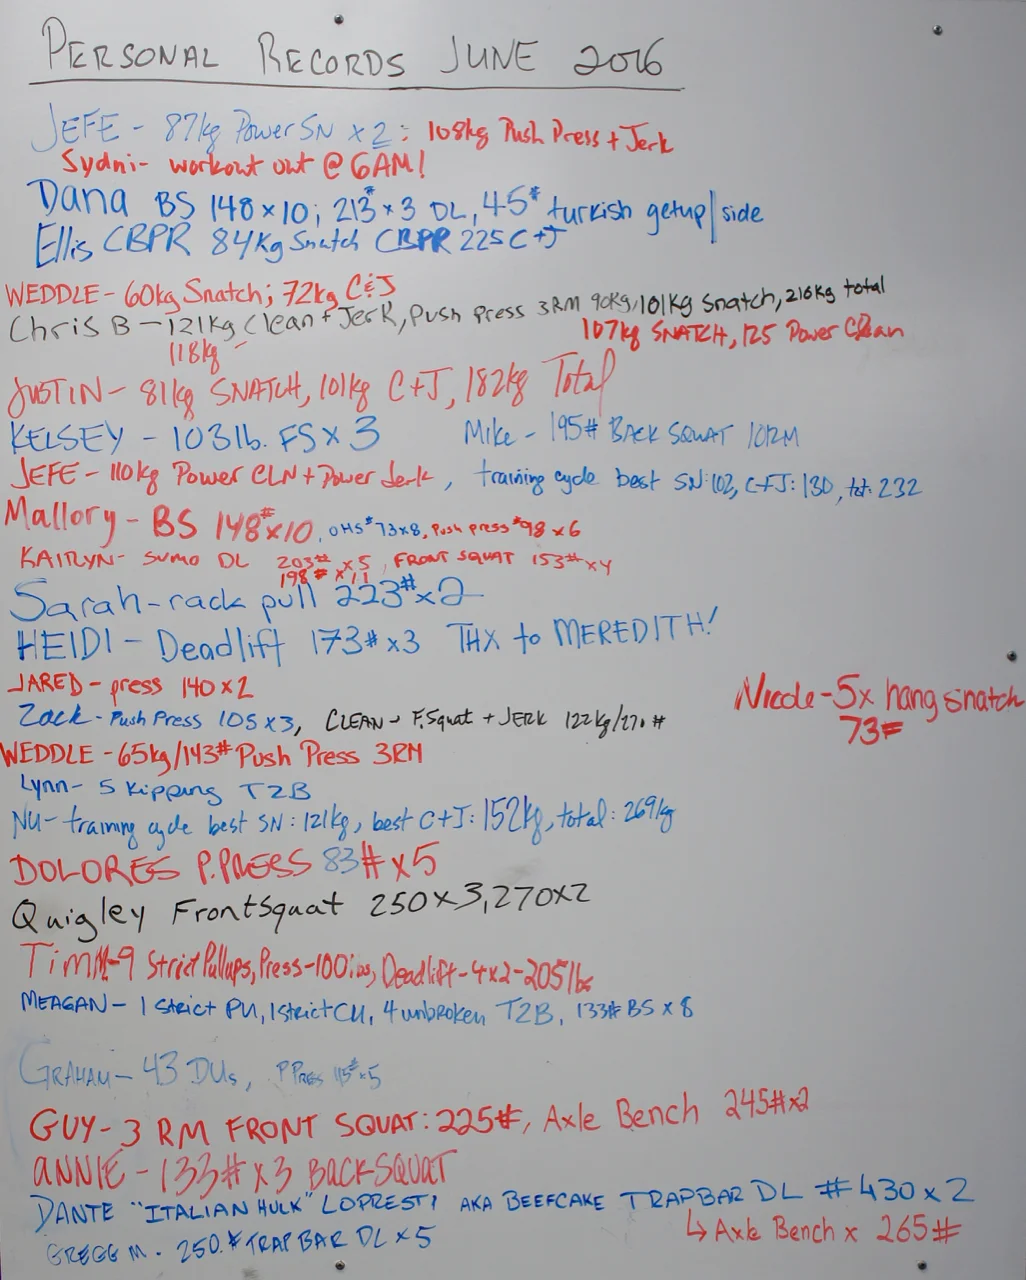 PERSONAL RECORDS JUNE 2016
JEFE - 87kg Power SN x 2; 108kg Push Press + Jerk
Sydni- workout out @ 6AM!
Dana BS 148 x 10; 213# x 3 DL, 45# turkish getup/side
Ellis CBPR 84Kg Snatch CBPR 225 C+J
WEDDLE - 60kg Snatch; 72kg C&J
Chris B - 121Kg Clean + Jerk, Push Press 3RM 90Kg, 101Kg Snatch, 216Kg total
118kg 107kg SNATCH, 125 Power Clean
JUSTIN - 81kg SNATCH, 101kg C+J, 182kg Total
KELSEY - 103lb. FS x 3 Mike - 195# BACK SQUAT 10RM
JEFE - 110kg Power CLN + Power Jerk, training cycle best SN: 102, C+J: 130, tot: 232
Mallory - BS 148# x 10, OHS #73 x 8, Push press #98 x 6
KAITLYN- SUMO DL 203# x 5, FRONT SQUAT 153# x 4
198# x 11
Sarah - rack pull 223# x 2
HEIDI - Deadlift 173# x 3 THX to MEREDITH!
JARED - press 140 x 2
Nicole - 5x hang snatch
73#
Zack - Push Press 105 x 3, CLEAN + F. Squat + JERK 122kg/270#
WEDDLE - 65kg/143# Push Press 3RM
Lynn - 5 Kipping T2B
NU - training cycle best SN: 121kg, best C+J: 152kg, total: 269kg
DOLORES P.PRESS 83# x 5
Quigley Front Squat 250 x 3, 270 x 2
TIMM-9 Strict Pullups, Press-100lbs, Deadlift-4x2-205lbs
MEAGAN - 1 Strict PU, 1 strict CU, 4 unbroken T2B, 133# BS x 8
GRAHAM - 43 DUs, P Press 115# x 5
GUY - 3 RM FRONT SQUAT: 225#, Axle Bench 245# x 2
ANNIE - 133# x 3 BACKSQUAT
DANTE "ITALIAN HULK" LOPRESTI AKA BEEFCAKE TRAPBAR DL #430 x 2
↳ Axle Bench x 265#
GREGG M. - 250# TRAP BAR DL x 5